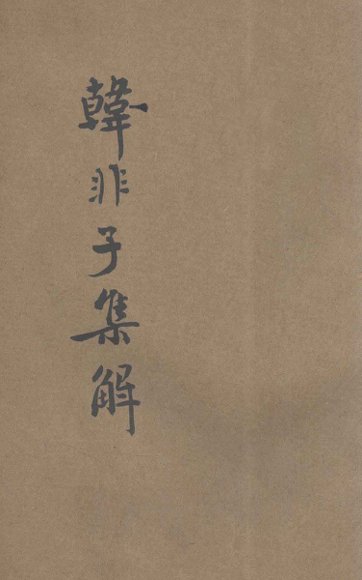 韓非子集解